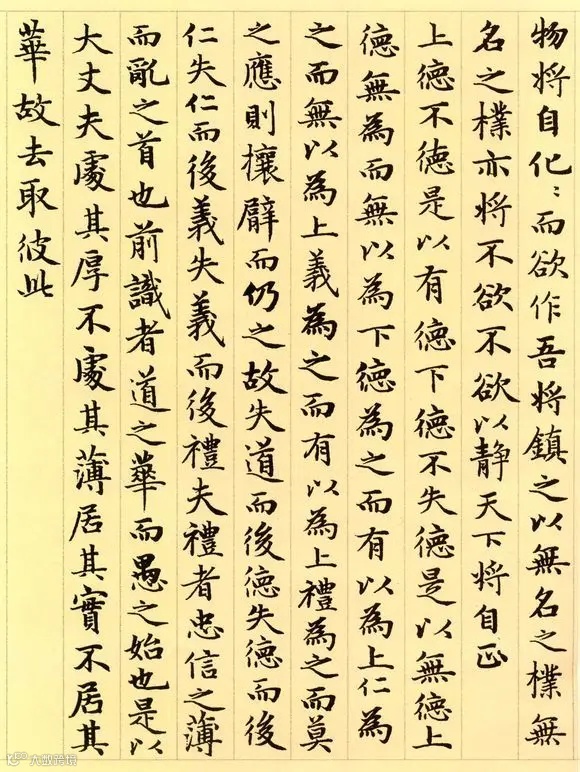 物将自化〻而欲作吾将鎮之以無名之樸無
名之樸亦将不欲不欲以静天下将自正
上德不德是以有德下德不失德是以無德上
德無為而無以為下德為之而有以為上仁為
之而無以為上義為之而有以為上禮為之而莫
之應則攘臂而仍之故失道而後德失德而後
仁失仁而後義失義而後禮夫禮者忠信之薄
而亂之首也前識者道之華而愚之始也是以
大丈夫處其厚不處其薄居其實不居其
華故去取彼此
大数跨境